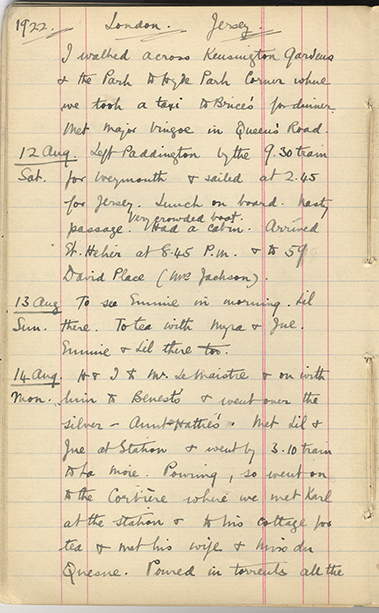 1922. London. Jersey.
I walked across Kensington Gardens
& the Park to Hyde Park Corner where
we took a taxi to Brice's for dinner.
Met Major Vingoe in Queen's Road.
12 Aug. Left Paddington by the 9.30 train
Sat. for Weymouth & sailed at 2.45
for Jersey. Lunch on board. Nasty
Very crowded boat.
passage. Had a cabin. Arrived
St. Helier at 8.45 P.M. & to 59
David Place (Mrs Jackson).
13 Aug To see Emmie in morning. Lil
Sun. there. To tea with Myra & Jue.
Emmie & Lil there too.
14 Aug. H & I to Mr. Le Maistre & on with
Mon. him to Benest's & went over the
silver - Aunt Hattie's. Met Lil &
Jue at Station & went by 3.10 train
to La Moie. Pouring, so went on
to the Corbière where we met Karl
at the station & to his cottage for
tea & met his wife & Miss du
Quesne. Poured in torrents all the